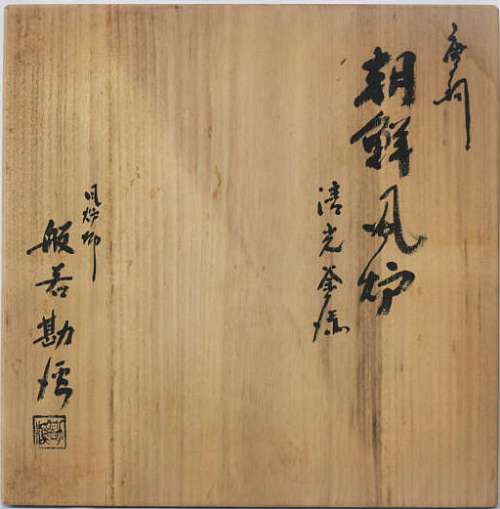 唐銅
朝鮮風炉
清光釜添
風炉師
般若勘渓